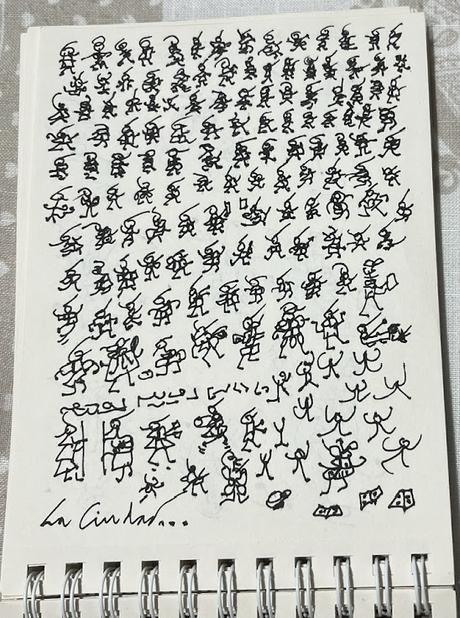 La Ciudad...